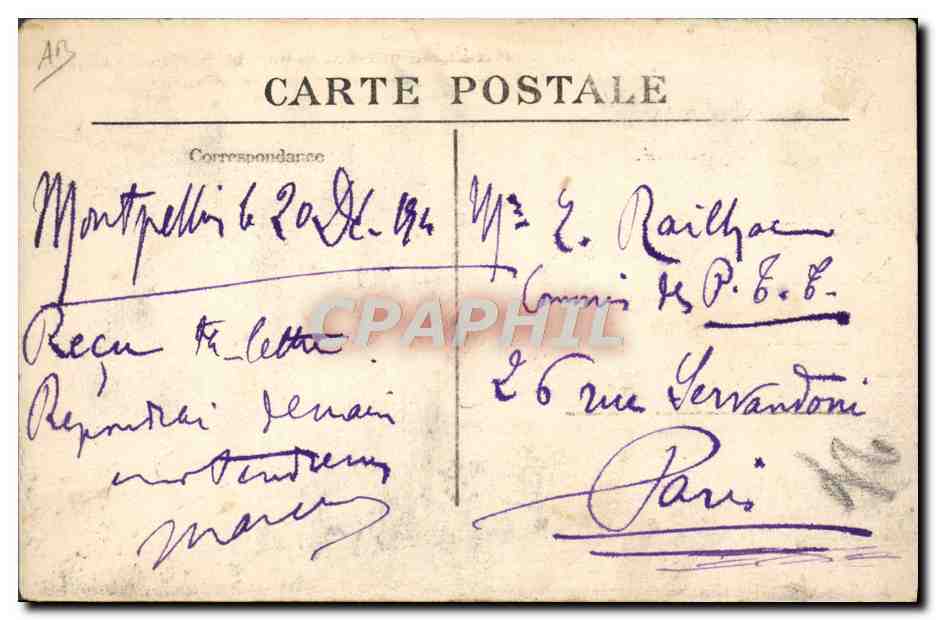 AB
CARTE POSTALE
Correspondance
Montpellier le 20 Dc. 
Reçu ta lettre.
Repondrai demain
tendresses
Marcel
Mr E. Railhac
Commis des P.T.T.
26 rue Servandoni
Paris
CPAPHIL